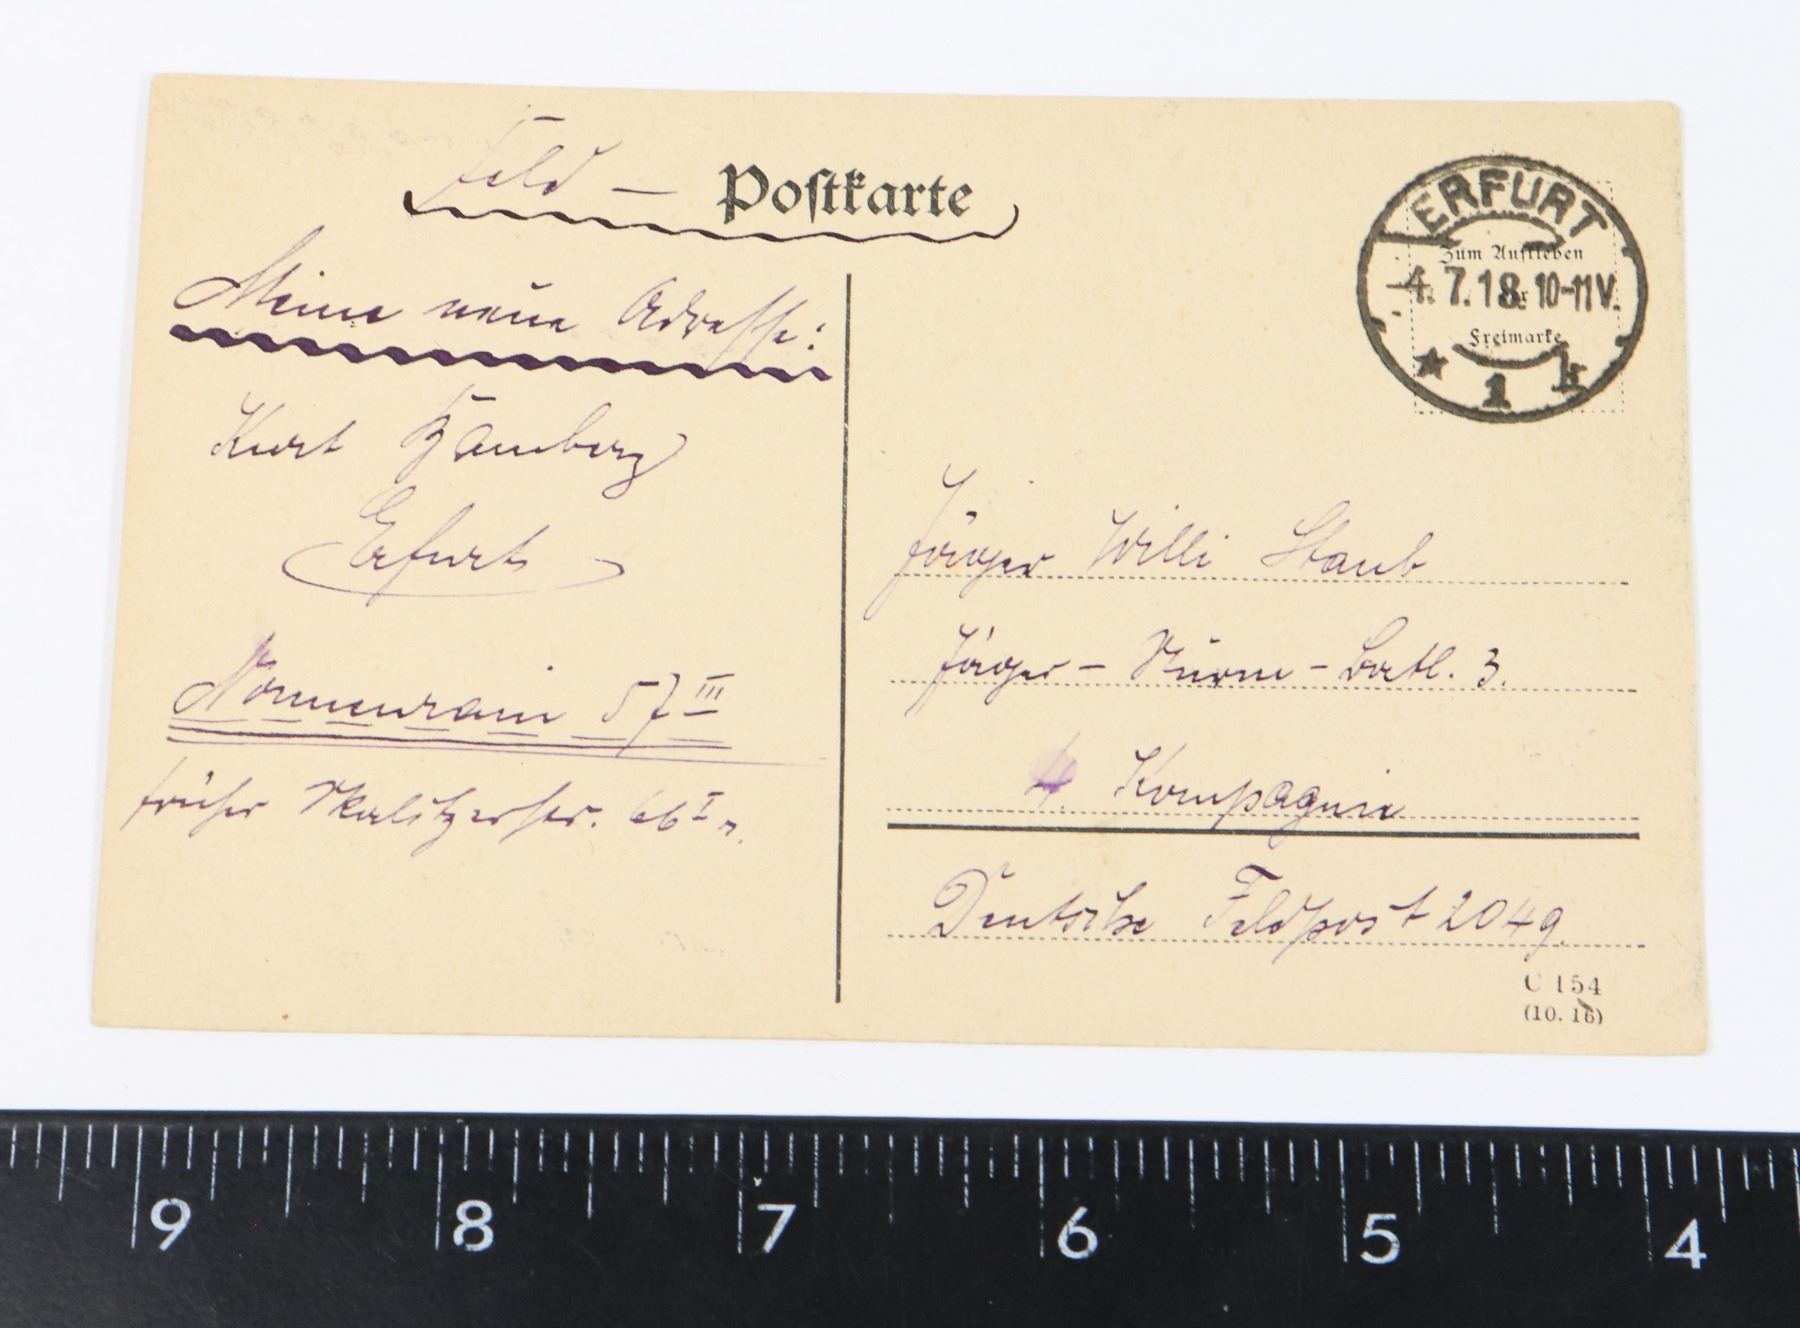 Feld – Postkarte
ERFURT
Zum Aufkleben
der
Freimarke
4.7.18. 10-11V.
* 1 k
Meine neue Adresse:
Kurt Bamberg
Erfurt
Nonnenrain 57 III
früher Skalitzerstr. 66 I r.
Jäger Willi Staub
Jäger – Sturm – Batl. 3.
4. Kompagnie
Deutsche Feldpost 2049.
C 154
(10. 16)
9 8 7 6 5 4